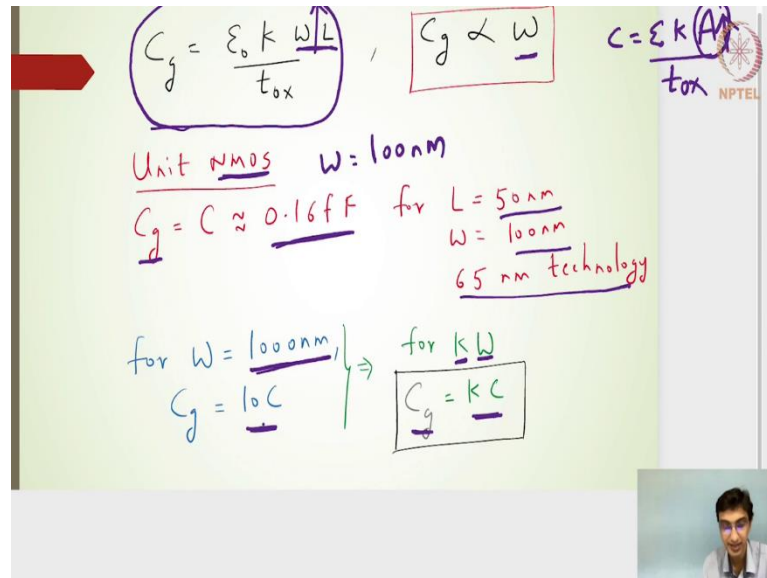 Cg = ε₀ k W L / tox , Cg ∝ W C = ε k (A) / tox
NPTEL
Unit NMOS W = 100nm
Cg = C ≈ 0.16fF for L = 50nm
W = 100nm
65 nm technology
for W = 1000nm, ⇒ for k W
Cg = 10C Cg = kC